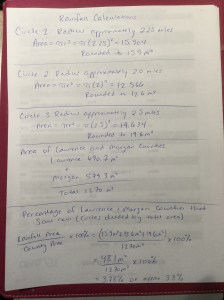 Rainfall Calculations
Circle 1 Radius approximately 2.25 miles
Area = πr² = π(2.25)² = 15.904
Rounded to 15.9 m²
Circle 2 Radius approximately 20 miles
Area = πr² = π(2)² = 12.566
Rounded to 12.6 m²
Circle 3 Radius approximately 2.5 miles
Area = πr² = π(2.5)² = 19.634
Rounded to 19.6 m²
Area of Lawrence and Morgan Counties
Lawrence 690.7 m²
+
Morgan 579.3 m²
Total 1270 m²
Percentage of Lawrence & Morgan Counties that
Saw rain (circles divided by total area)
Rainfall Area
County Area
x 100% =
1270 m²
x 100%
= 48.1 m²
1270 m²
x 100%